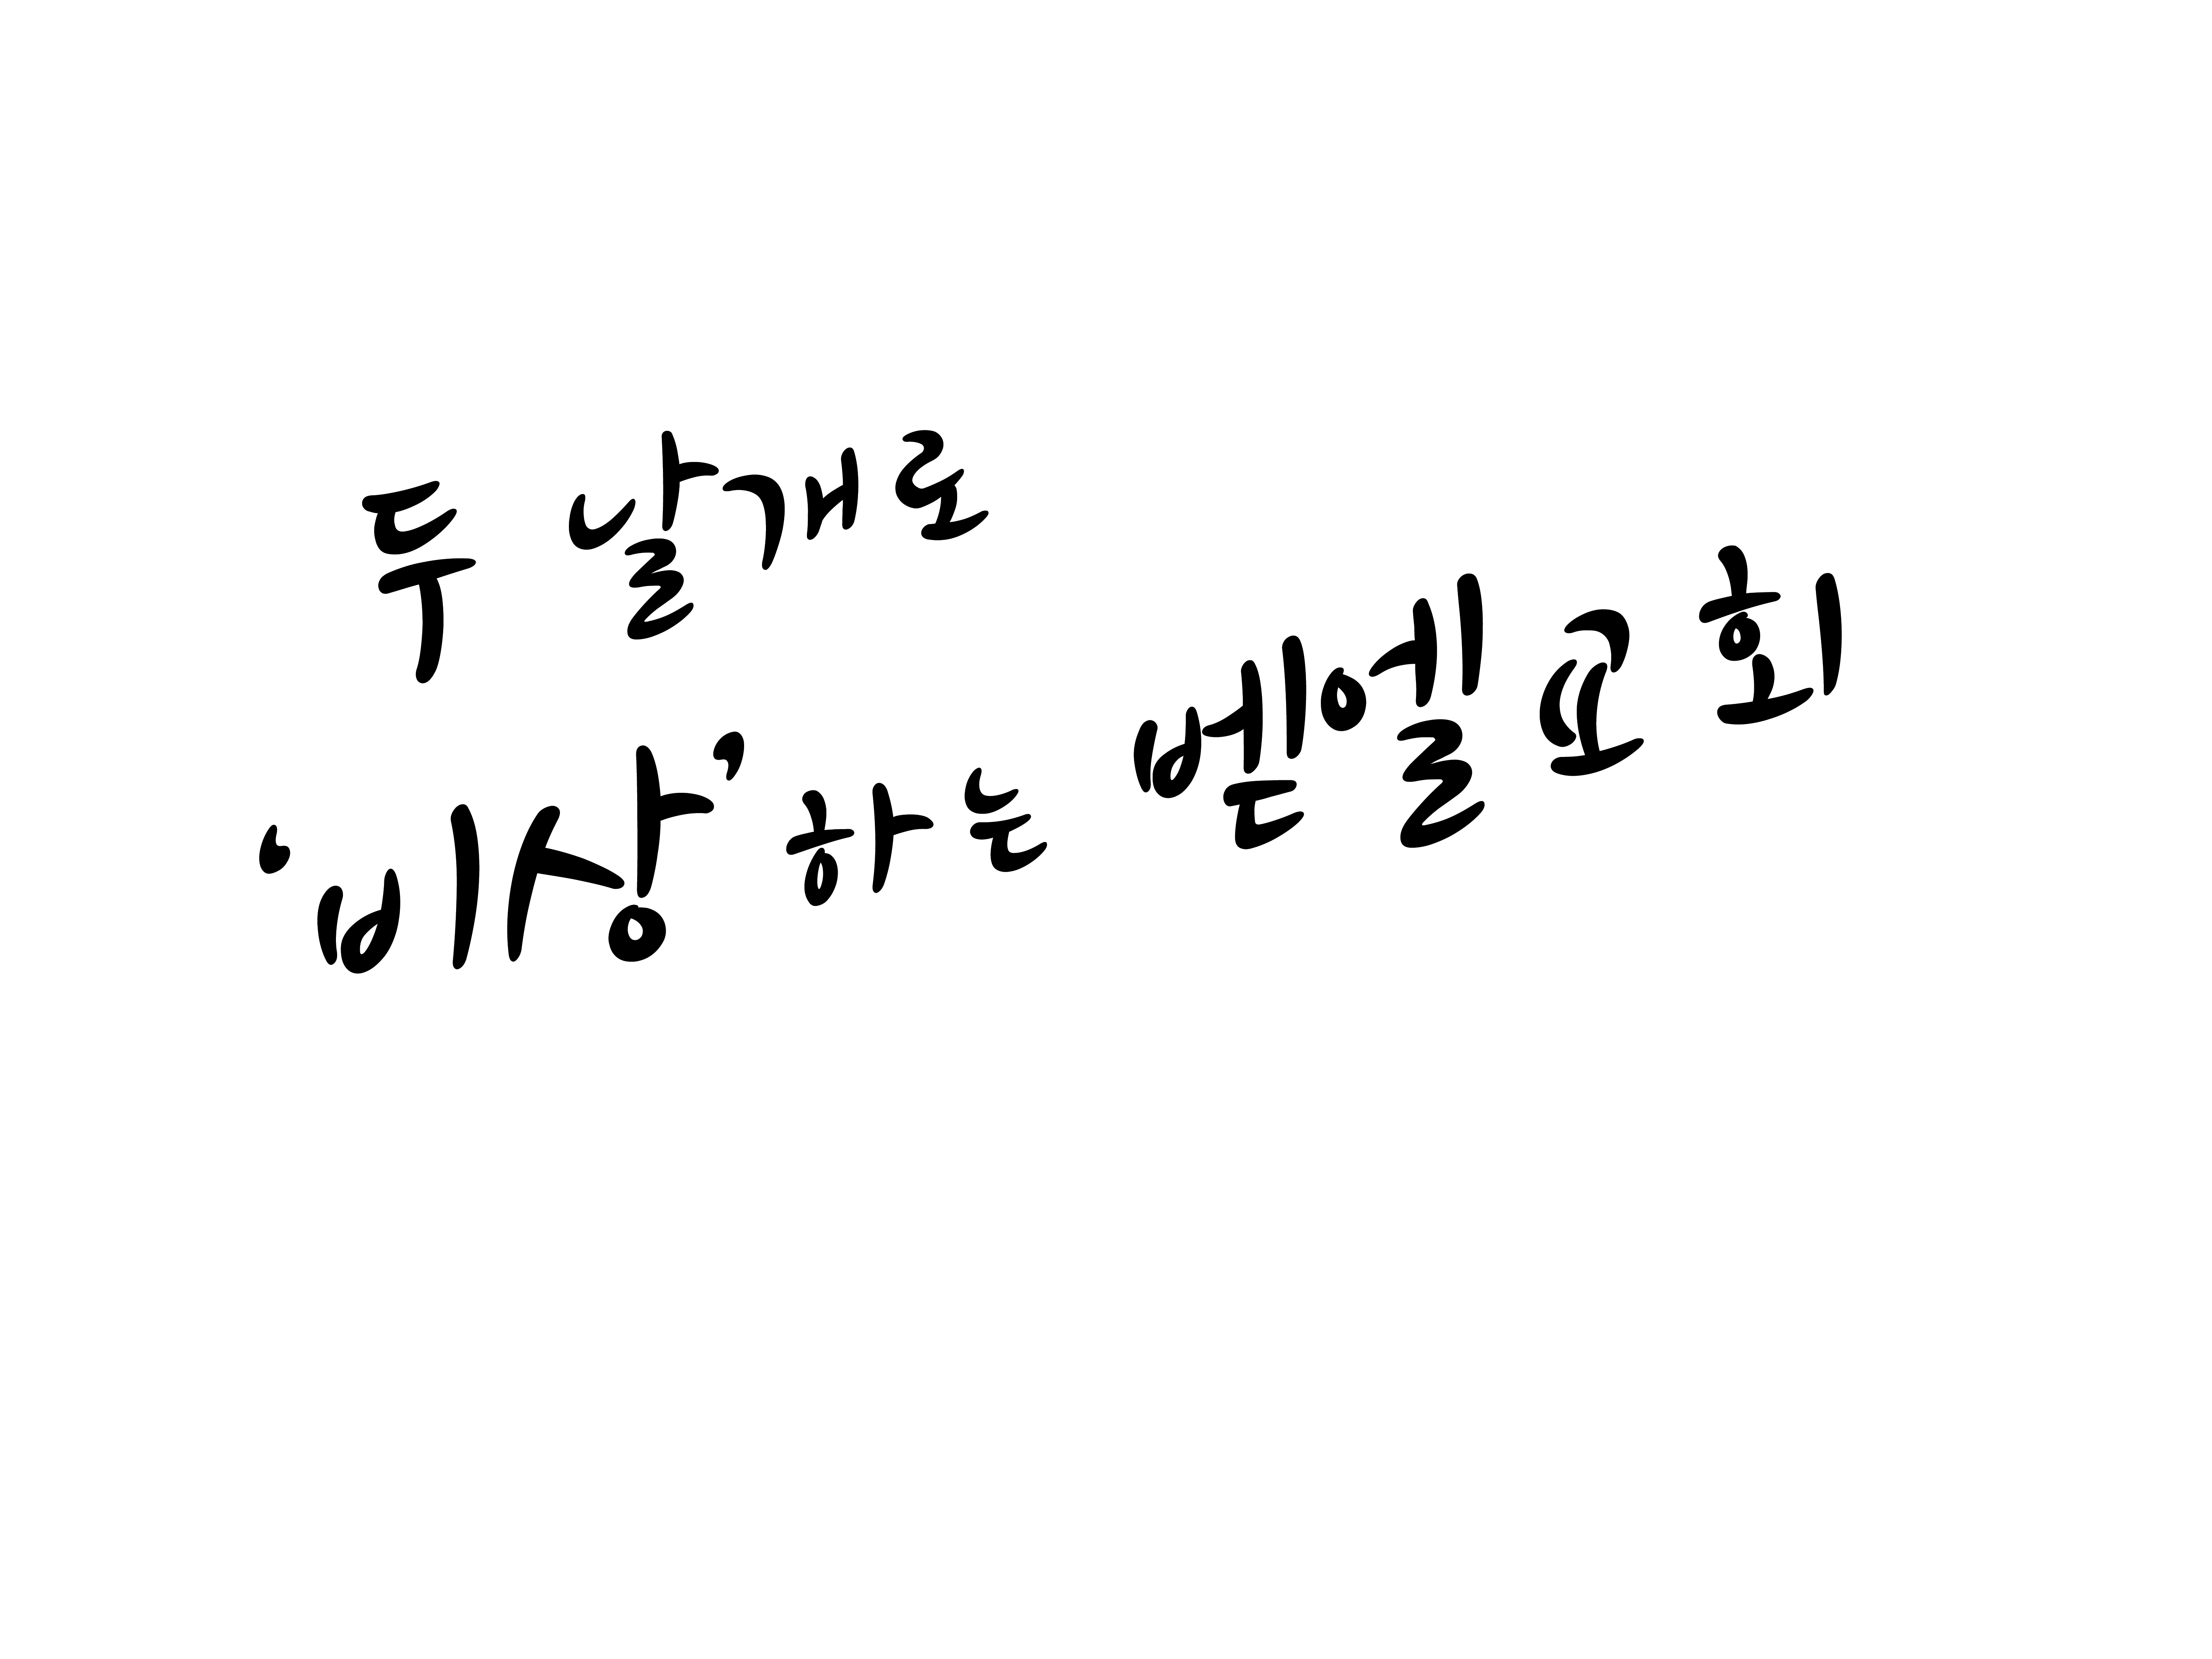 두 날개로
‘비상’하는 벧엘교회